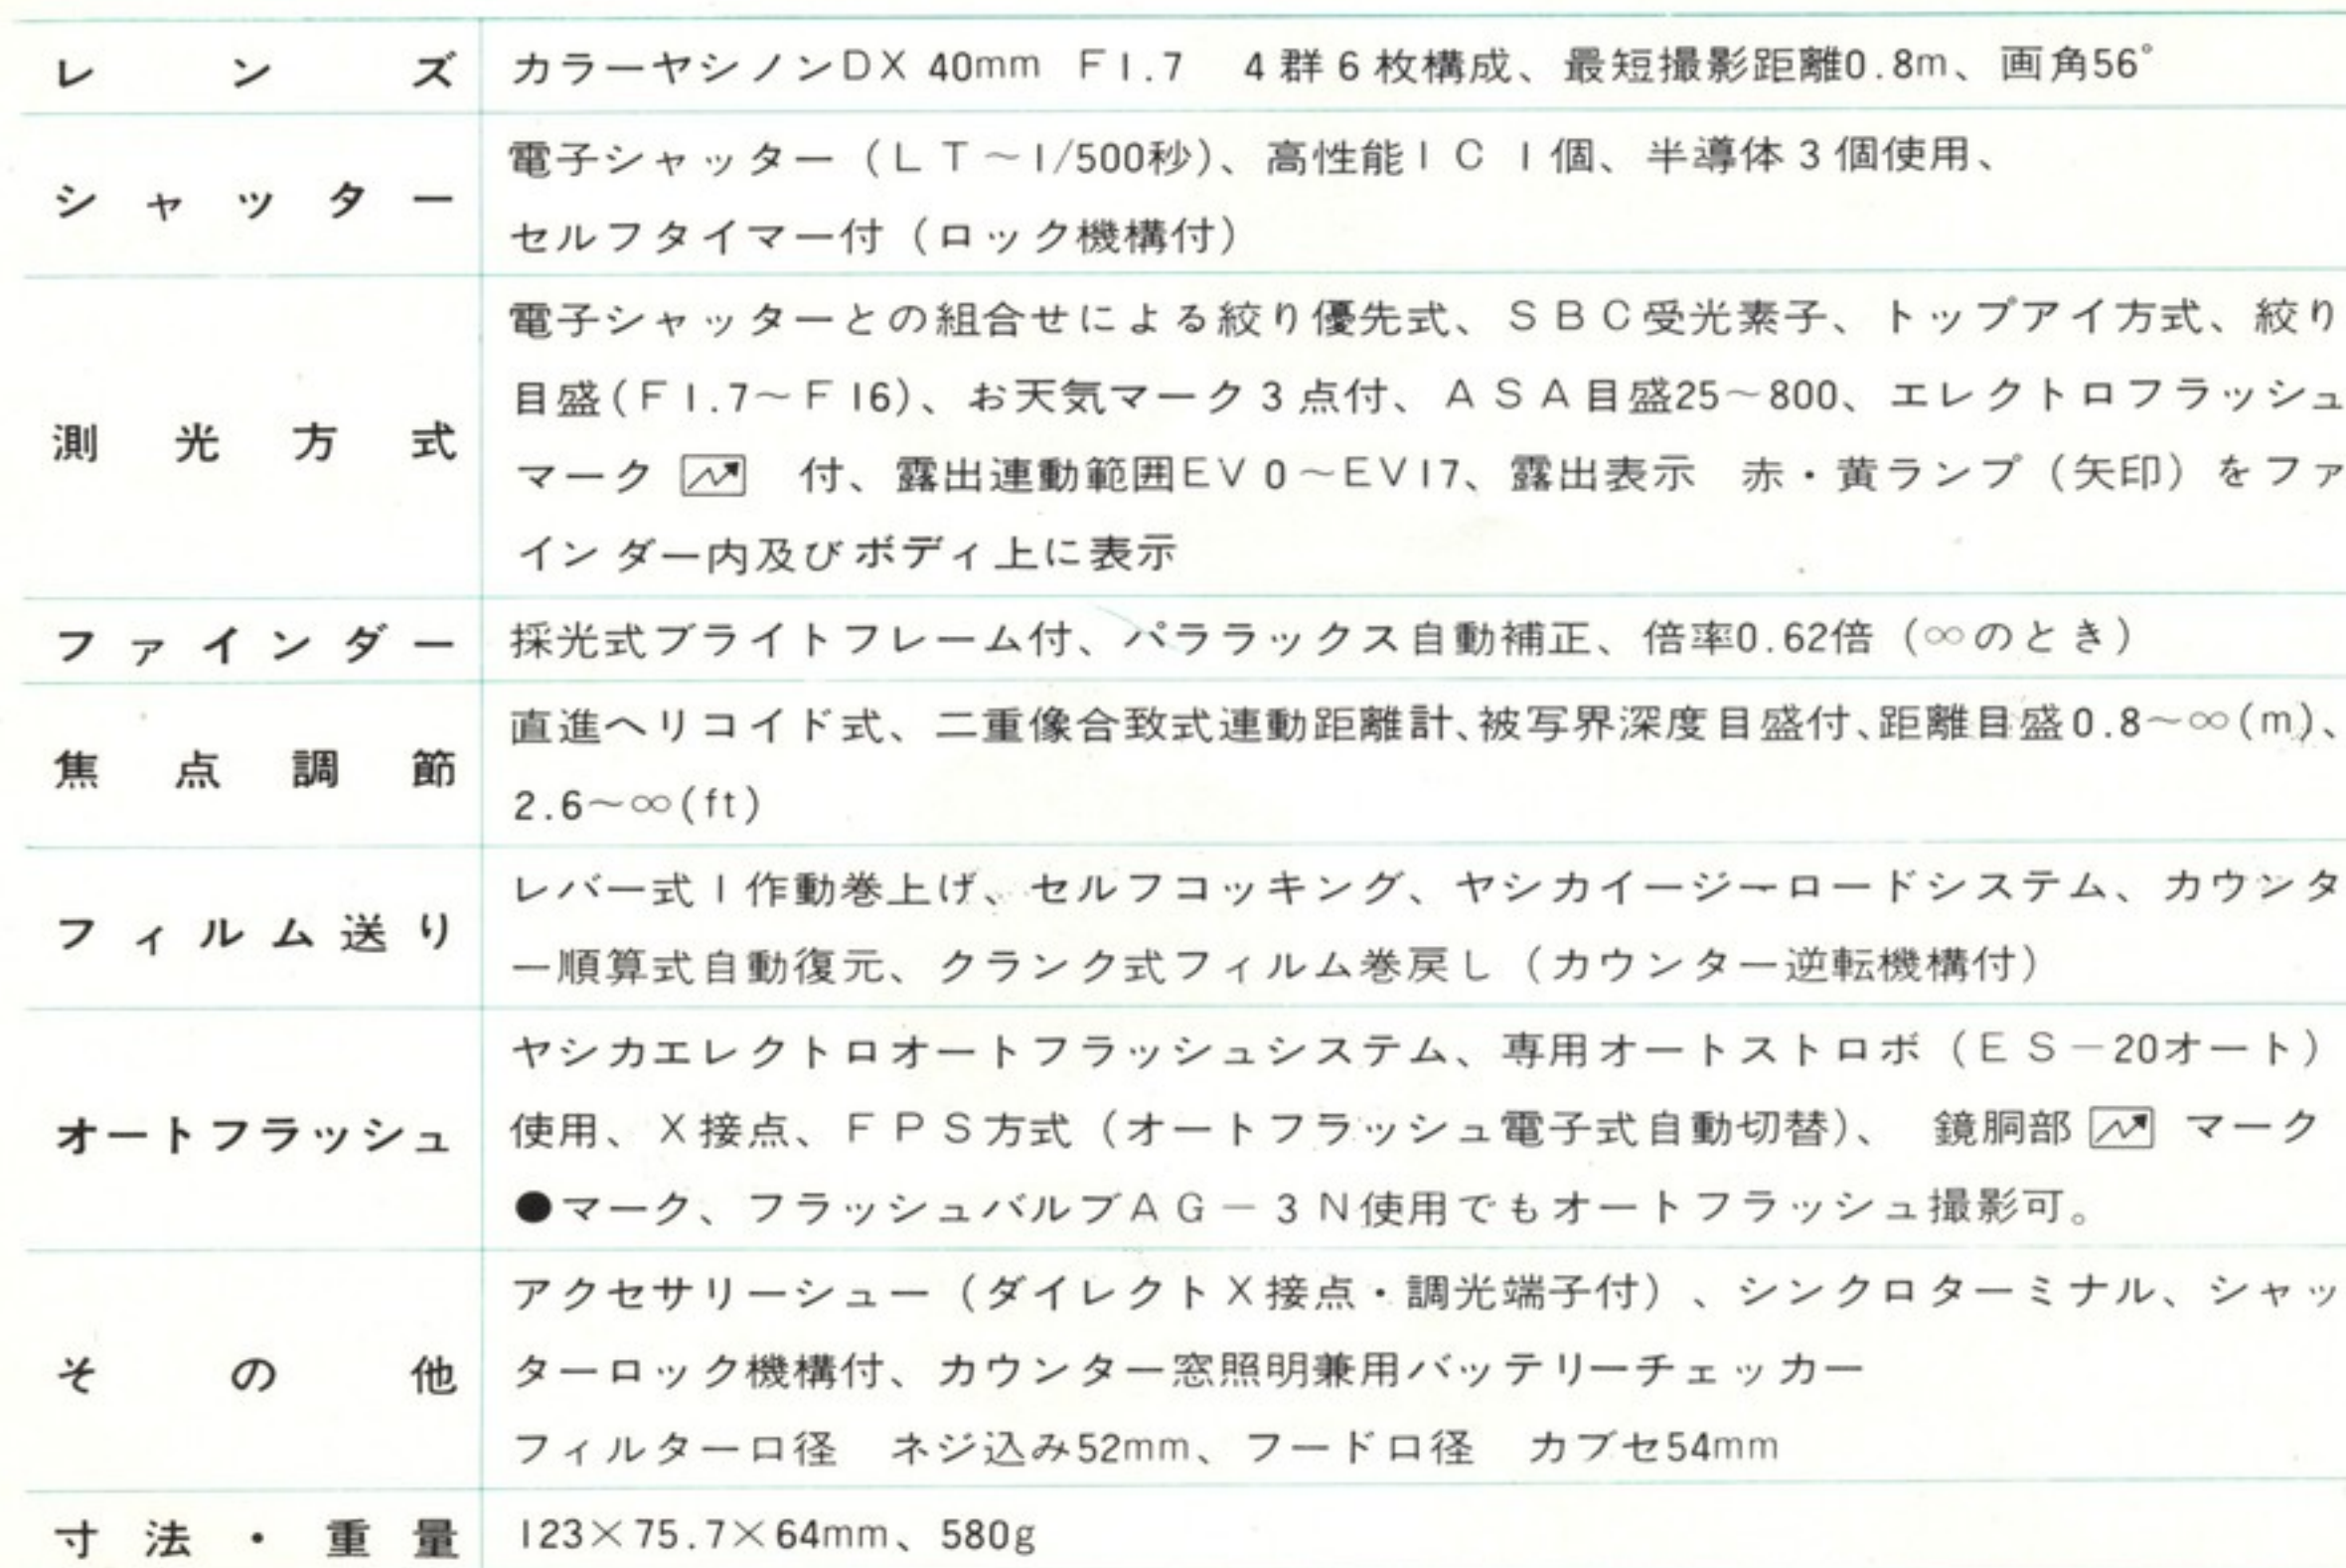 レンズ カラーヤシノンDX 40mm F1.7 4群6枚構成、最短撮影距離0.8m、画角56°
シャッター 電子シャッター(LT~1/500秒)、高性能IC 1個、半導体3個使用、
セルフタイマー付(ロック機構付)
測光方式 電子シャッターとの組合せによる絞り優先式、SBC受光素子、トップアイ方式、絞り
目盛(F1.7~F16)、お天気マーク3点付、ASA目盛25~800、エレクトロフラッシュ
マーク 付、露出連動範囲EV0~EV17、露出表示 赤・黄ランプ(矢印)をファ
インダー内及びボディ上に表示
ファインダー 採光式ブライトフレーム付、パララックス自動補正、倍率0.62倍(∞のとき)
焦点調節 直進ヘリコイド式、二重像合致式連動距離計、被写界深度目盛付、距離目盛0.8~∞(m)、
2.6~∞(ft)
フィルム送り レバー式1作動巻上げ、セルフコッキング、ヤシカイージーロードシステム、カウンタ
ー順算式自動復元、クランク式フィルム巻戻し(カウンター逆転機構付)
オートフラッシュ ヤシカエレクトロオートフラッシュシステム、専用オートストロボ(ES-20オート)
使用、X接点、FPS方式(オートフラッシュ電子式自動切替)、 鏡胴部 マーク
●マーク、フラッシュバルブAG-3N使用でもオートフラッシュ撮影可。
その他 アクセサリーシュー(ダイレクトX接点・調光端子付)、シンクロターミナル、シャッ
ターロック機構付、カウンター窓照明兼用バッテリーチェッカー
フィルター口径 ネジ込み52mm、フード口径 カブセ54mm
寸法・重量 123×75.7×64mm、580g